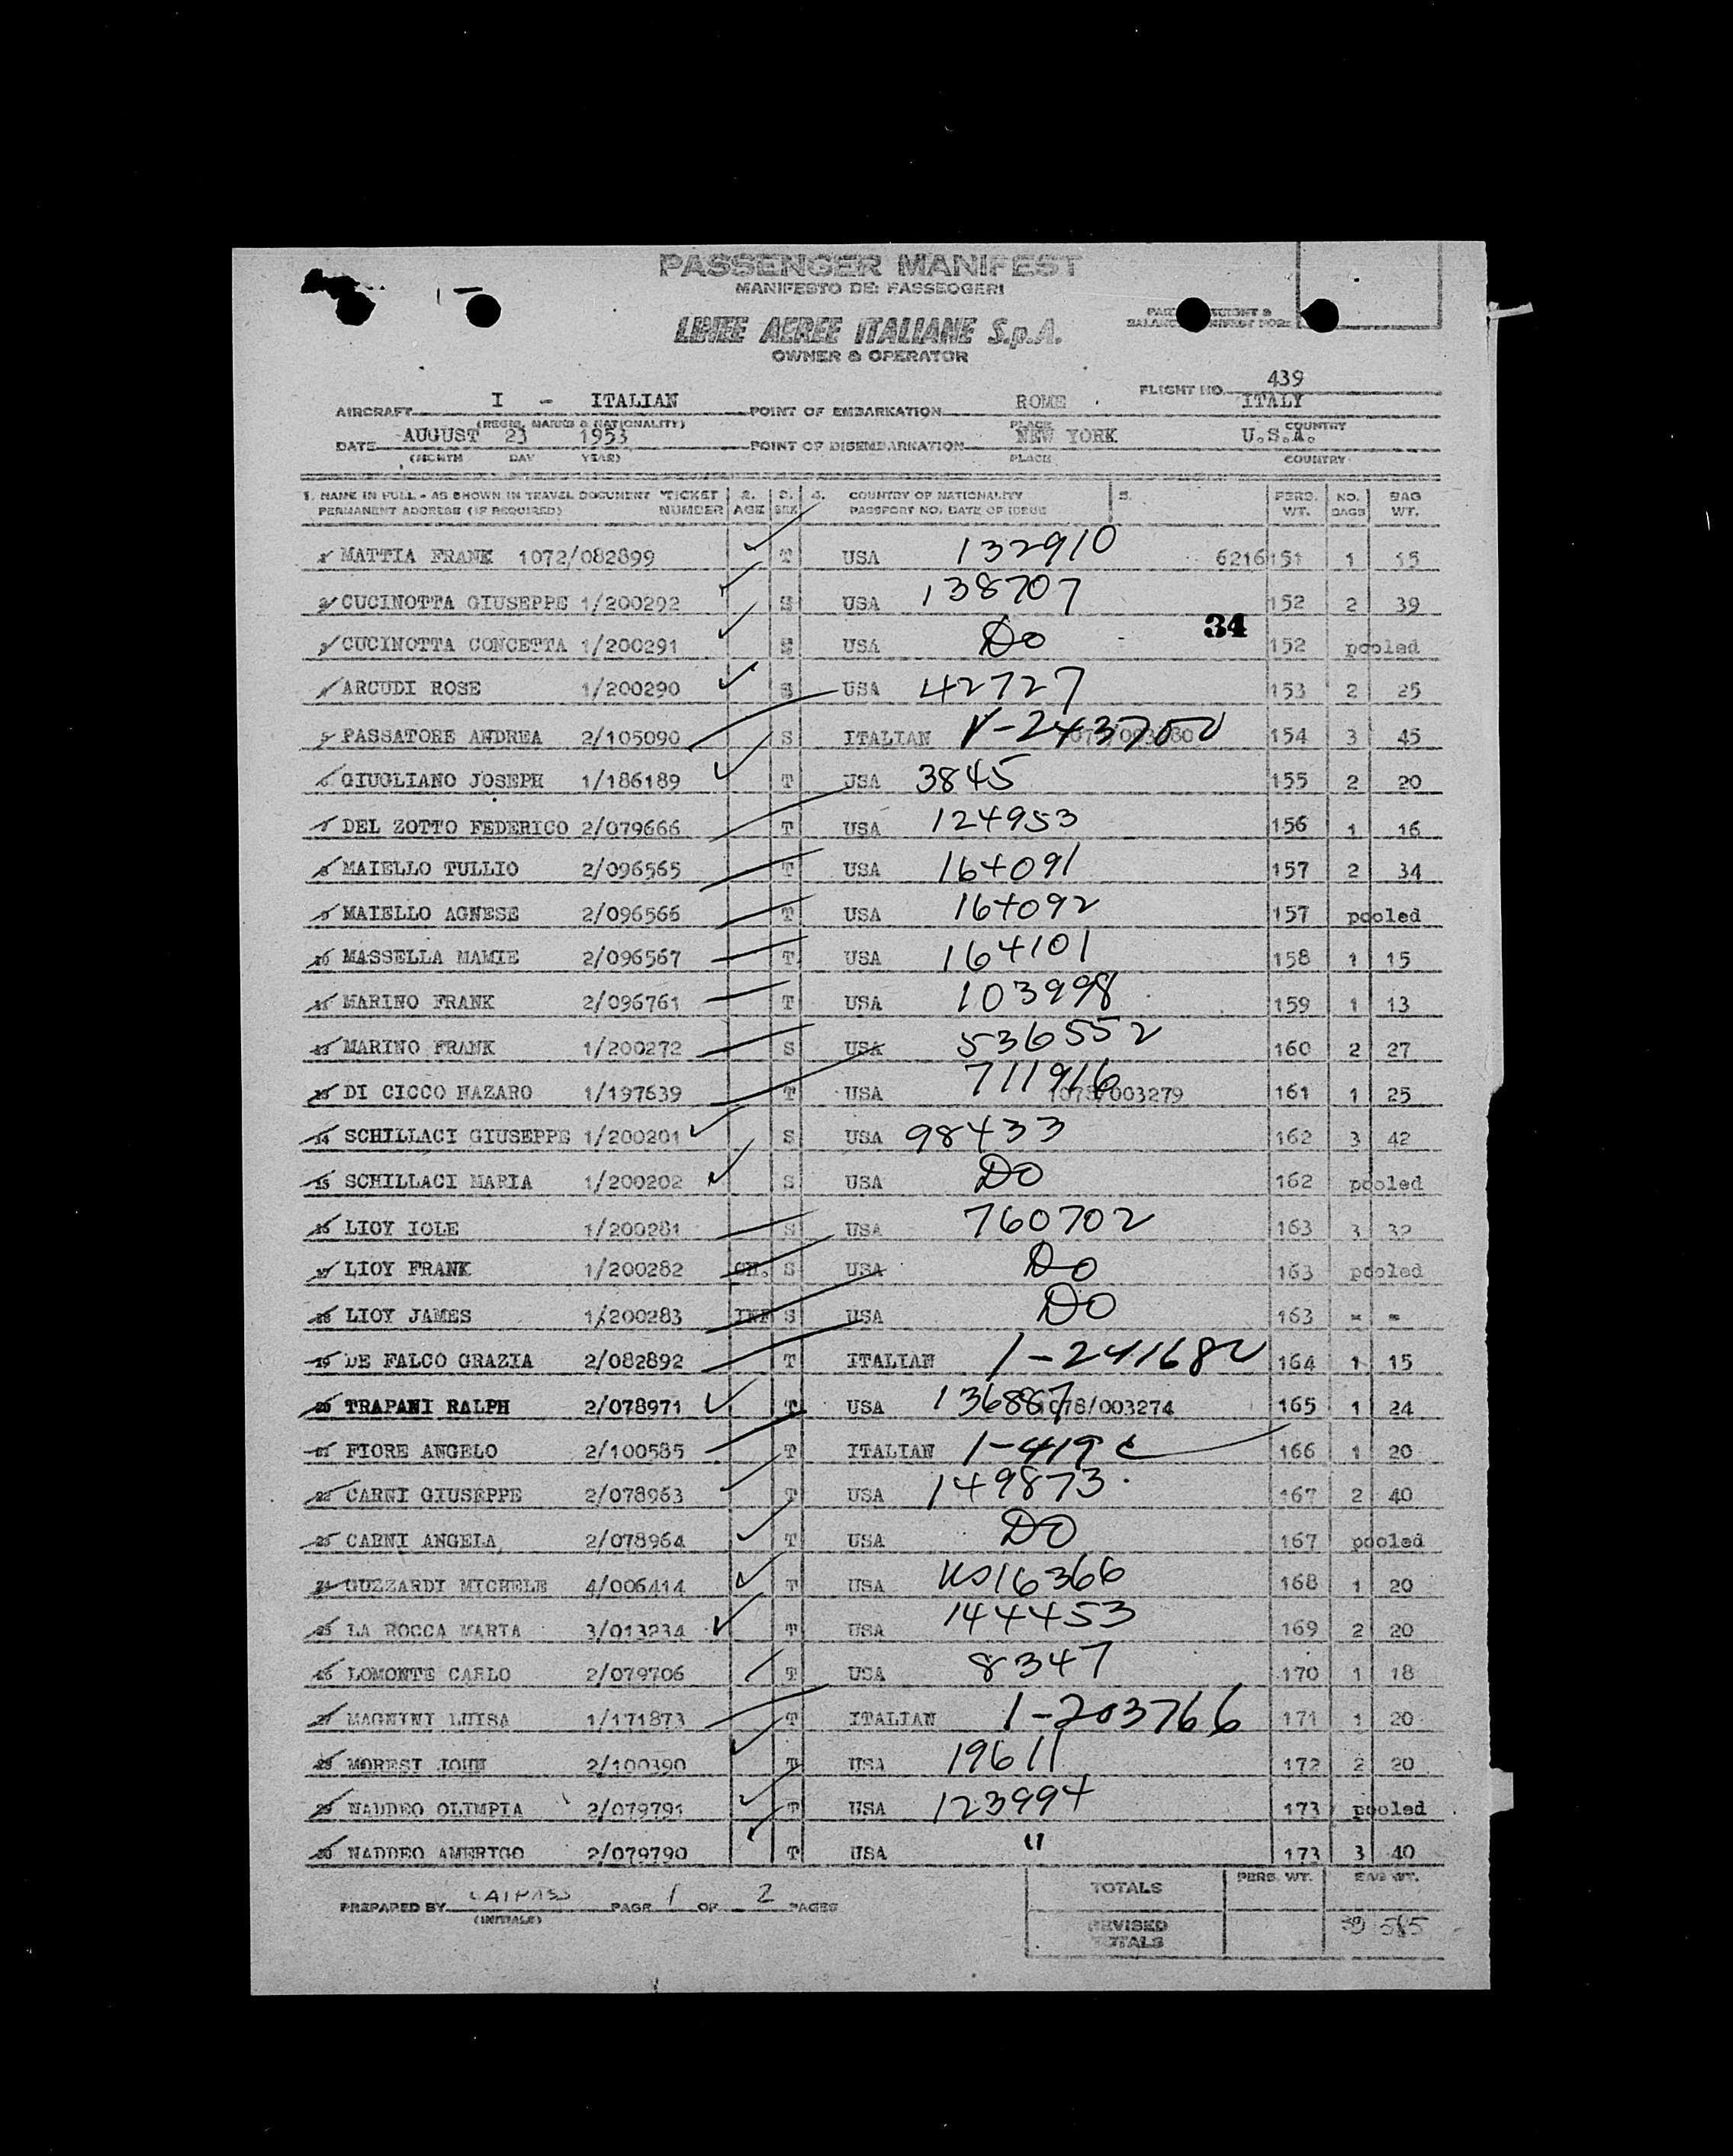 PASSENGER MANIFEST
MANIFESTO DEI PASSEGGERI
LINEE AEREE ITALIANE S.p.A.
OWNER & OPERATOR
FLIGHT NO. 439
AIRCRAFT I - ITALIAN POINT OF EMBARKATION ROME ITALY
(REGIS. MARKS & NATIONALITY) PLACE COUNTRY
DATE AUGUST 23 1953 POINT OF DISEMBARKATION NEW YORK U.S.A.
(MONTH DAY YEAR) PLACE COUNTRY
1. NAME IN FULL - AS SHOWN IN TRAVEL DOCUMENT TICKET 2. 3. 4. COUNTRY OF NATIONALITY 5. PERS. NO. BAG
PERMANENT ADDRESS (IF REQUIRED) NUMBER AGE SEX PASSPORT NO. DATE OF ISSUE WT. BAGS WT.
1 MATTIA FRANK 1072/082899 T USA 132910 6216 151 1 15
2 CUCINOTTA GIUSEPPE 1/200292 S USA 138707 152 2 39
34
3 CUCINOTTA CONCETTA 1/200291 S USA Do 152 pooled
4 ARCUDI ROSE 1/200290 S USA 42727 153 2 25
5 PASSATORE ANDREA 2/105090 S ITALIAN V-243700 154 3 45
6 GIUGLIANO JOSEPH 1/186189 T USA 3845 155 2 20
7 DEL ZOTTO FEDERICO 2/079666 T USA 124953 156 1 16
8 MAIELLO TULLIO 2/096565 T USA 164091 157 2 34
9 MAIELLO AGNESE 2/096566 T USA 164092 157 pooled
10 MASSELLA MAMIE 2/096567 T USA 164101 158 1 15
11 MARINO FRANK 2/096761 T USA 103998 159 1 13
12 MARINO FRANK 1/200272 S USA 536552 160 2 27
13 DI CICCO NAZARO 1/197639 T USA 711916 1078/003279 161 1 25
14 SCHILLACI GIUSEPPE 1/200201 S USA 98433 162 3 42
15 SCHILLACI MARIA 1/200202 S USA DO 162 pooled
16 LIOY IOLE 1/200281 S USA 760702 163 3 32
17 LIOY FRANK 1/200282 CH. S USA Do 163 pooled
18 LIOY JAMES 1/200283 INF S USA DO 163 - -
19 DE FALCO GRAZIA 2/082892 T ITALIAN 1-241682 164 1 15
20 TRAPANI RALPH 2/078971 T USA 136887 1078/003274 165 1 24
21 FIORE ANGELO 2/100585 T ITALIAN 1-419 c 166 1 20
22 CARNI GIUSEPPE 2/078963 T USA 149873 167 2 40
23 CARNI ANGELA 2/078964 T USA DO 167 pooled
24 GUZZARDI MICHELE 4/006414 T USA 16366 168 1 20
25 LA ROCCA MARIA 3/013234 T USA 144453 169 2 20
26 LOMONTE CARLO 2/079706 T USA 8347 170 1 18
27 MAGNINI LUISA 1/171873 T ITALIAN 1-203766 171 1 20
28 MORESI JOHN 2/100390 T USA 19611 172 2 20
29 NADDEO OLIMPIA 2/079791 T USA 123994 173 pooled
30 NADDEO AMERIGO 2/079790 T USA " 173 3 40
TOTALS PERS. WT. BAG WT.
PREPARED BY LAIPASS PAGE 1 OF 2 PAGES
(INITIALS)
REVISED TOTALS 39 585